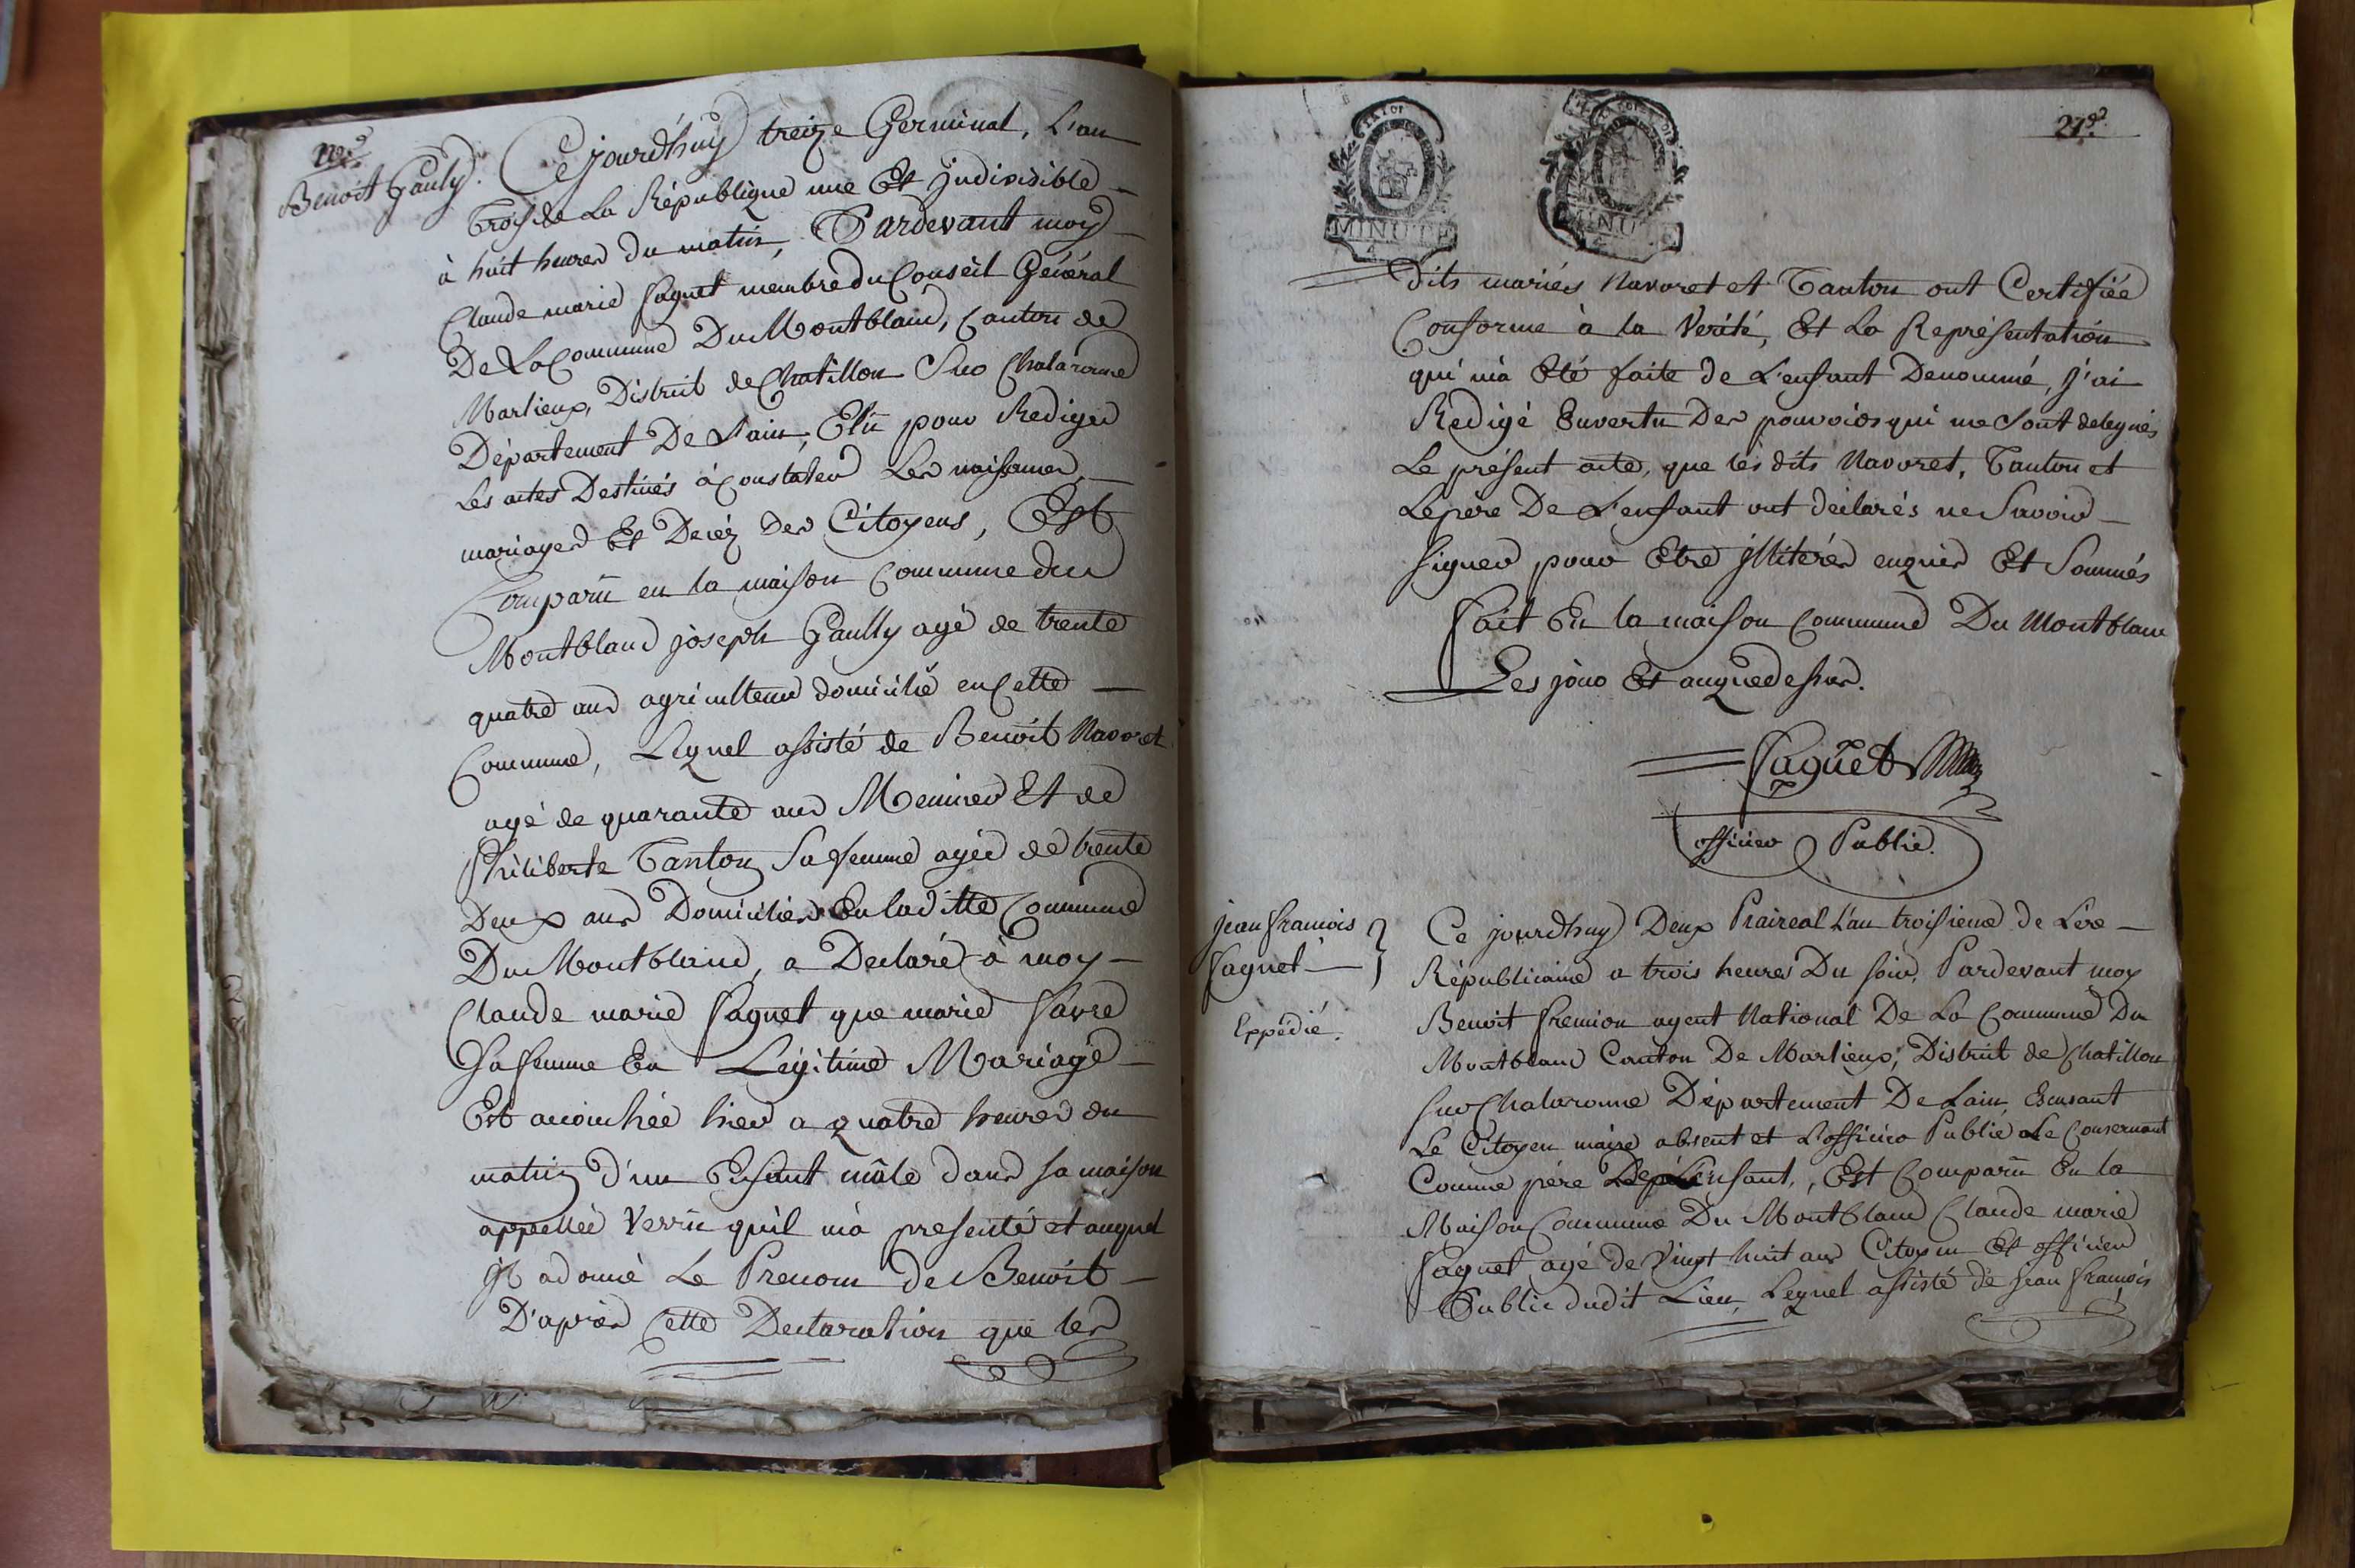 Benoit Gauly.
Ce jourdhuy treize Germinal, L'an
trois de La République une Et jndivisible
à huit heures du matin, Pardevant moy
Claude marie paguet membre du Conseil Général
De La Commune Du Montblanc, Canton de
Marlieux, District de Chatillon Sur Chalaronne
Département De Lain, Elû pour Rediger
Les actes Destinés à Constater Les naissances,
mariages Et Decéz Des Citoyens, Est
Comparû en la maison Commune du
Montblanc joseph Gaully agé de trente
quatre ans agriculteur domicilié en Cette
Commune, Lequel assisté de Benoit Navoret
agé de quarante ans Meunier Et de
philiberte Tanton Sa femme agée de trente
Deux ans Domiciliés En laditte Commune
Du Montblanc, a Declaré à moy
Claude marie paguet que marie favre
Sa femme En Légitime Mariage
Est accouchée hier a quatre heures du
matin d'un Enfant mâle dans sa maison
appellée Verrû qu'il m'à presenté et auquel
jl a donné Le Prenom de Benoit
D'après Cette Declaration que les
27e
MINUTE
MINUTE
dits mariés Navoret et Tanton ont Certifiée
Conforme à la Verité, Et La Représentation
qui m'à Eté faite de L'enfant Denommé, j'ai
Rédigé Envertu Des pouvoirs qui me Sont delegués
Le présent acte, que les dits Navoret, Tanton et
Le père De L'enfant ont déclarés ne Savoir
signer pour Etre jllitérés enquis Et Sommés
fait En la maison Commune Du Montblanc
Les jour Et an que dessus.
paguet
officier Public.
jean francois
paguet
Expédié.
Ce jourdhuy Deux Praireal L'an troisieme de L'ère
Républicaine a trois heures Du soir, Pardevant moy
Benoit fremion agent National De La Commune Du
Montblanc Canton De Marlieux, District de Chatillon
sur Chalaronne Département De Lain, Excusant
Le Citoyen maire absent et L'officier Public Le Concernant
Comme père De L'enfant, Est Comparû En la
Maison Commune Du Montblanc Claude marie
paguet agé de Vingt huit ans Citoyen Et officier
Public dudit Lieu, Lequel assisté de jean francois